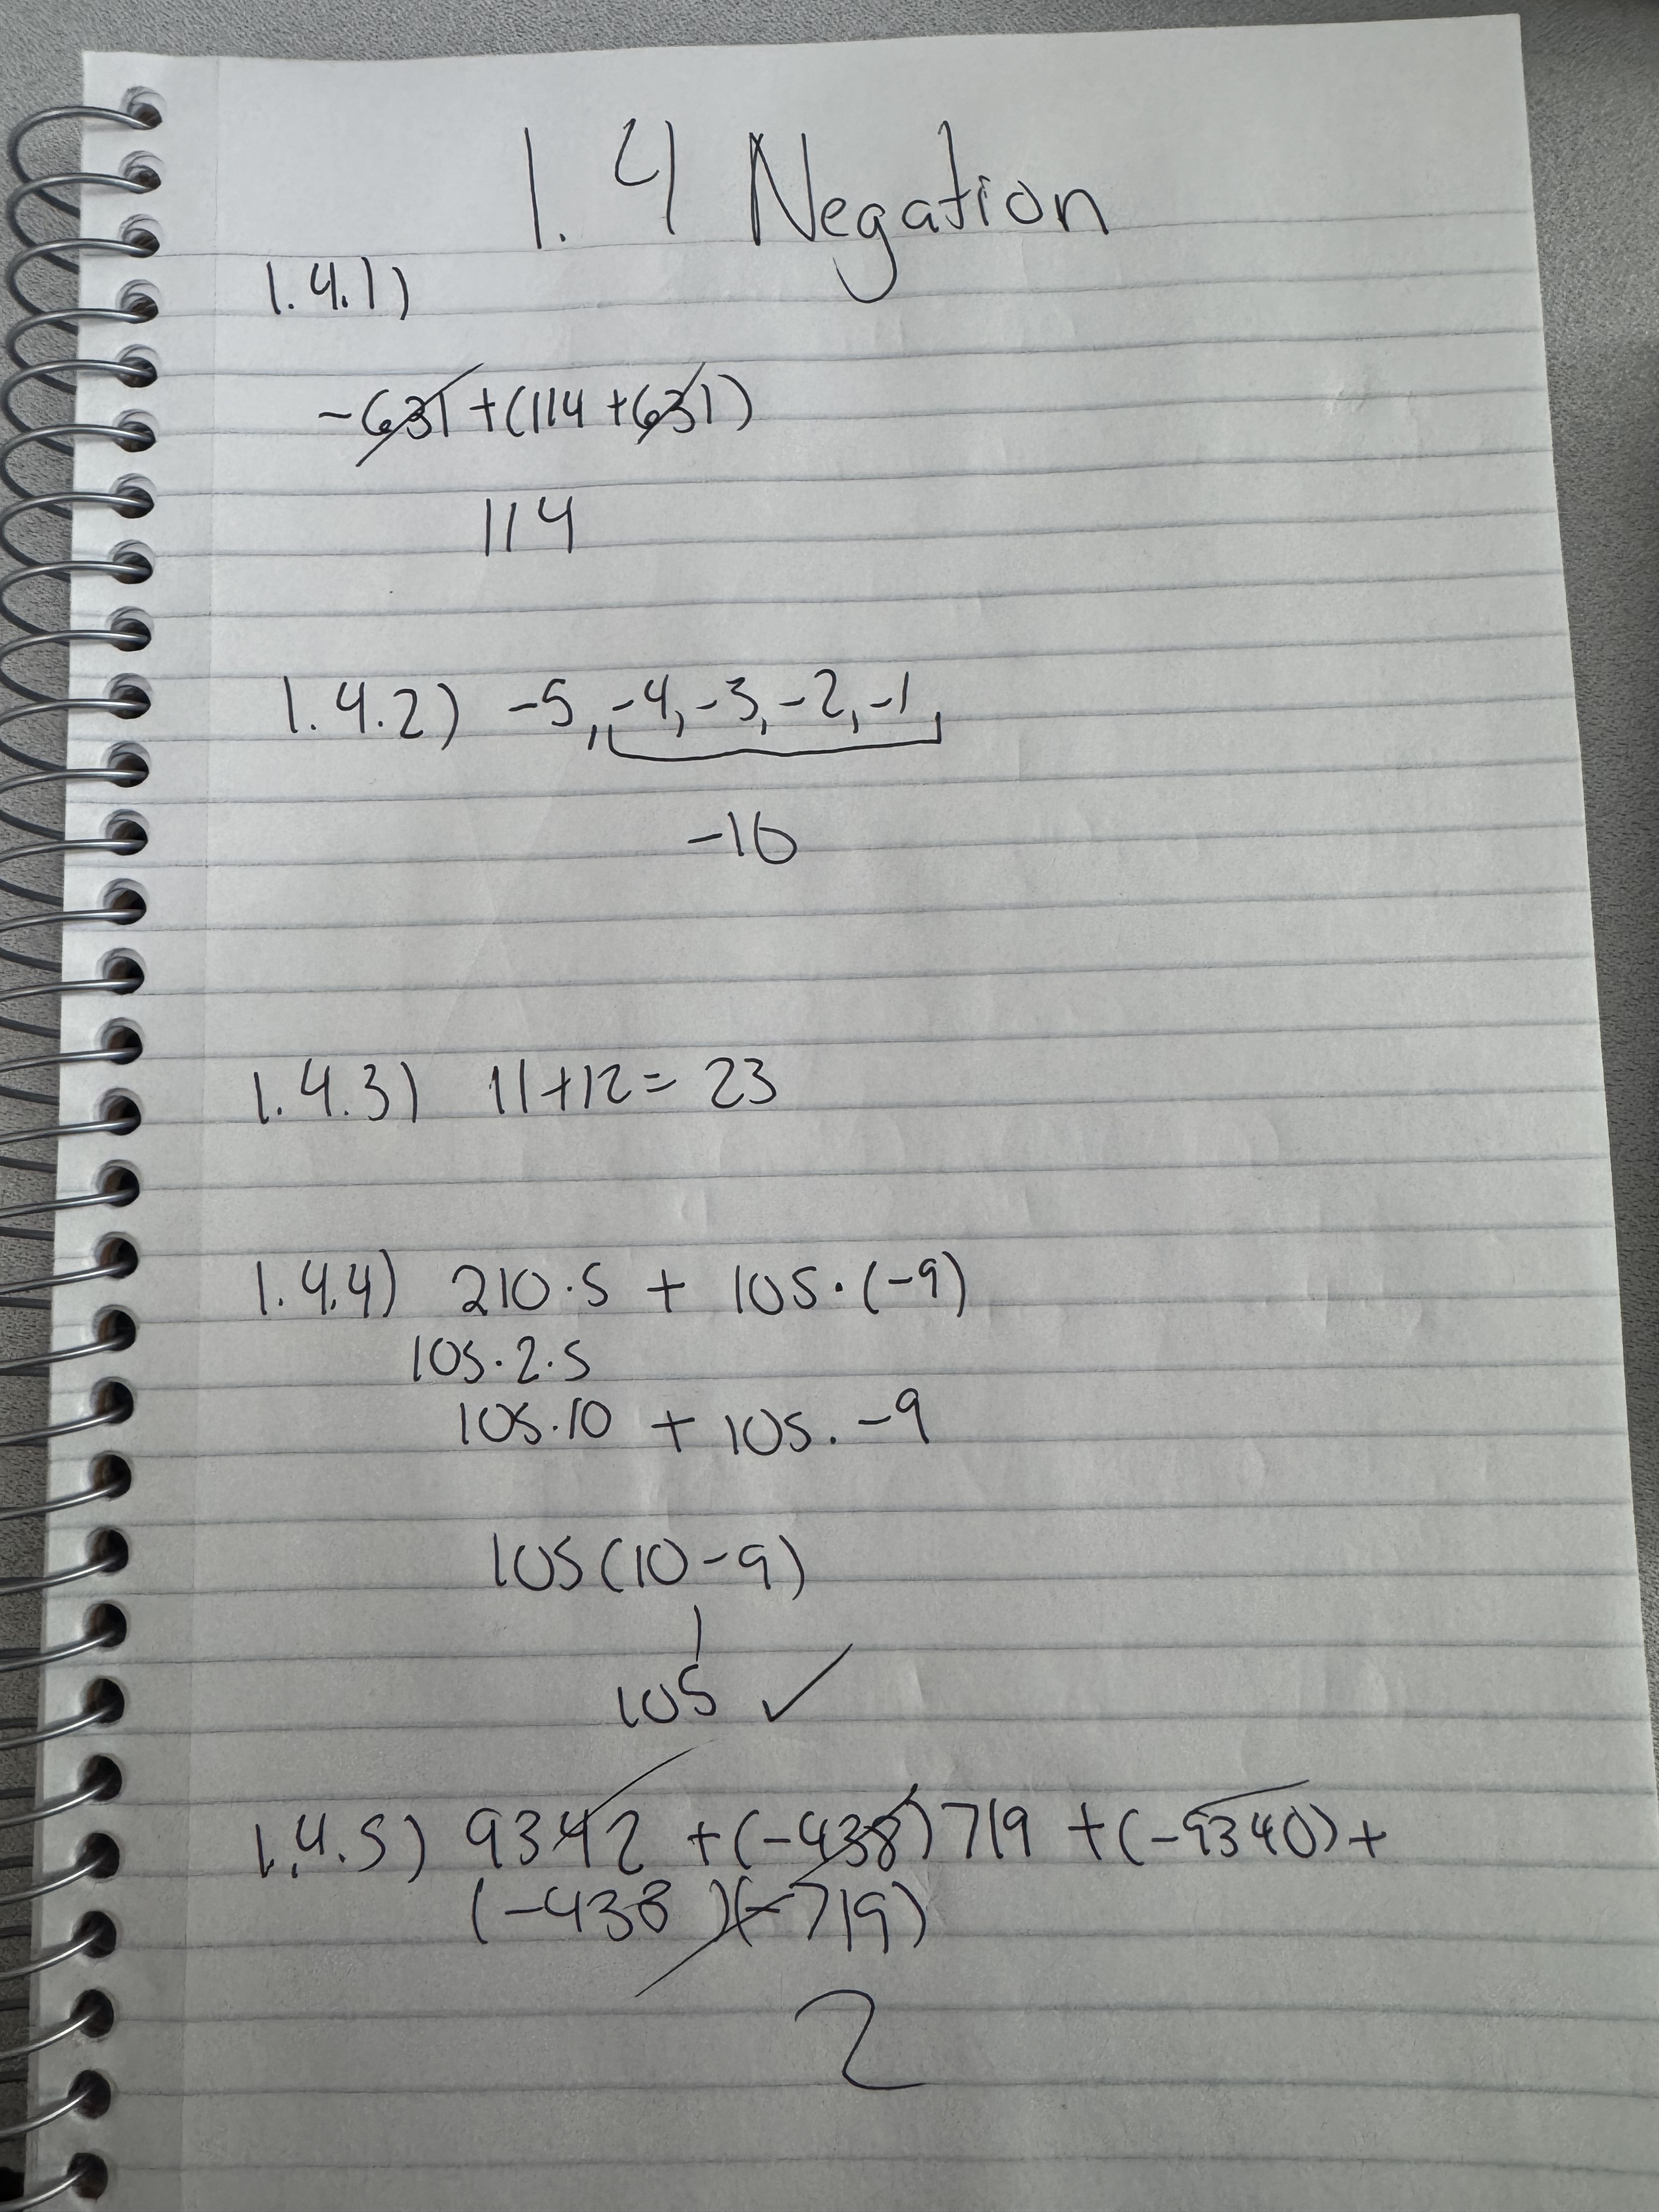 1.4 Negation
1.4.1)
-631 + (114 + 631)
114
1.4.2) -5, -4, -3, -2, -1,
-10
1.4.3) 11+12 = 23
1.4.4) 210·5 + 105·(-9)
105·2·5
105·10 + 105·-9
105(10-9)
105 ✓
1.4.5) 9342 + (-438)719 + (-9340) +
(-438)(-719)
2